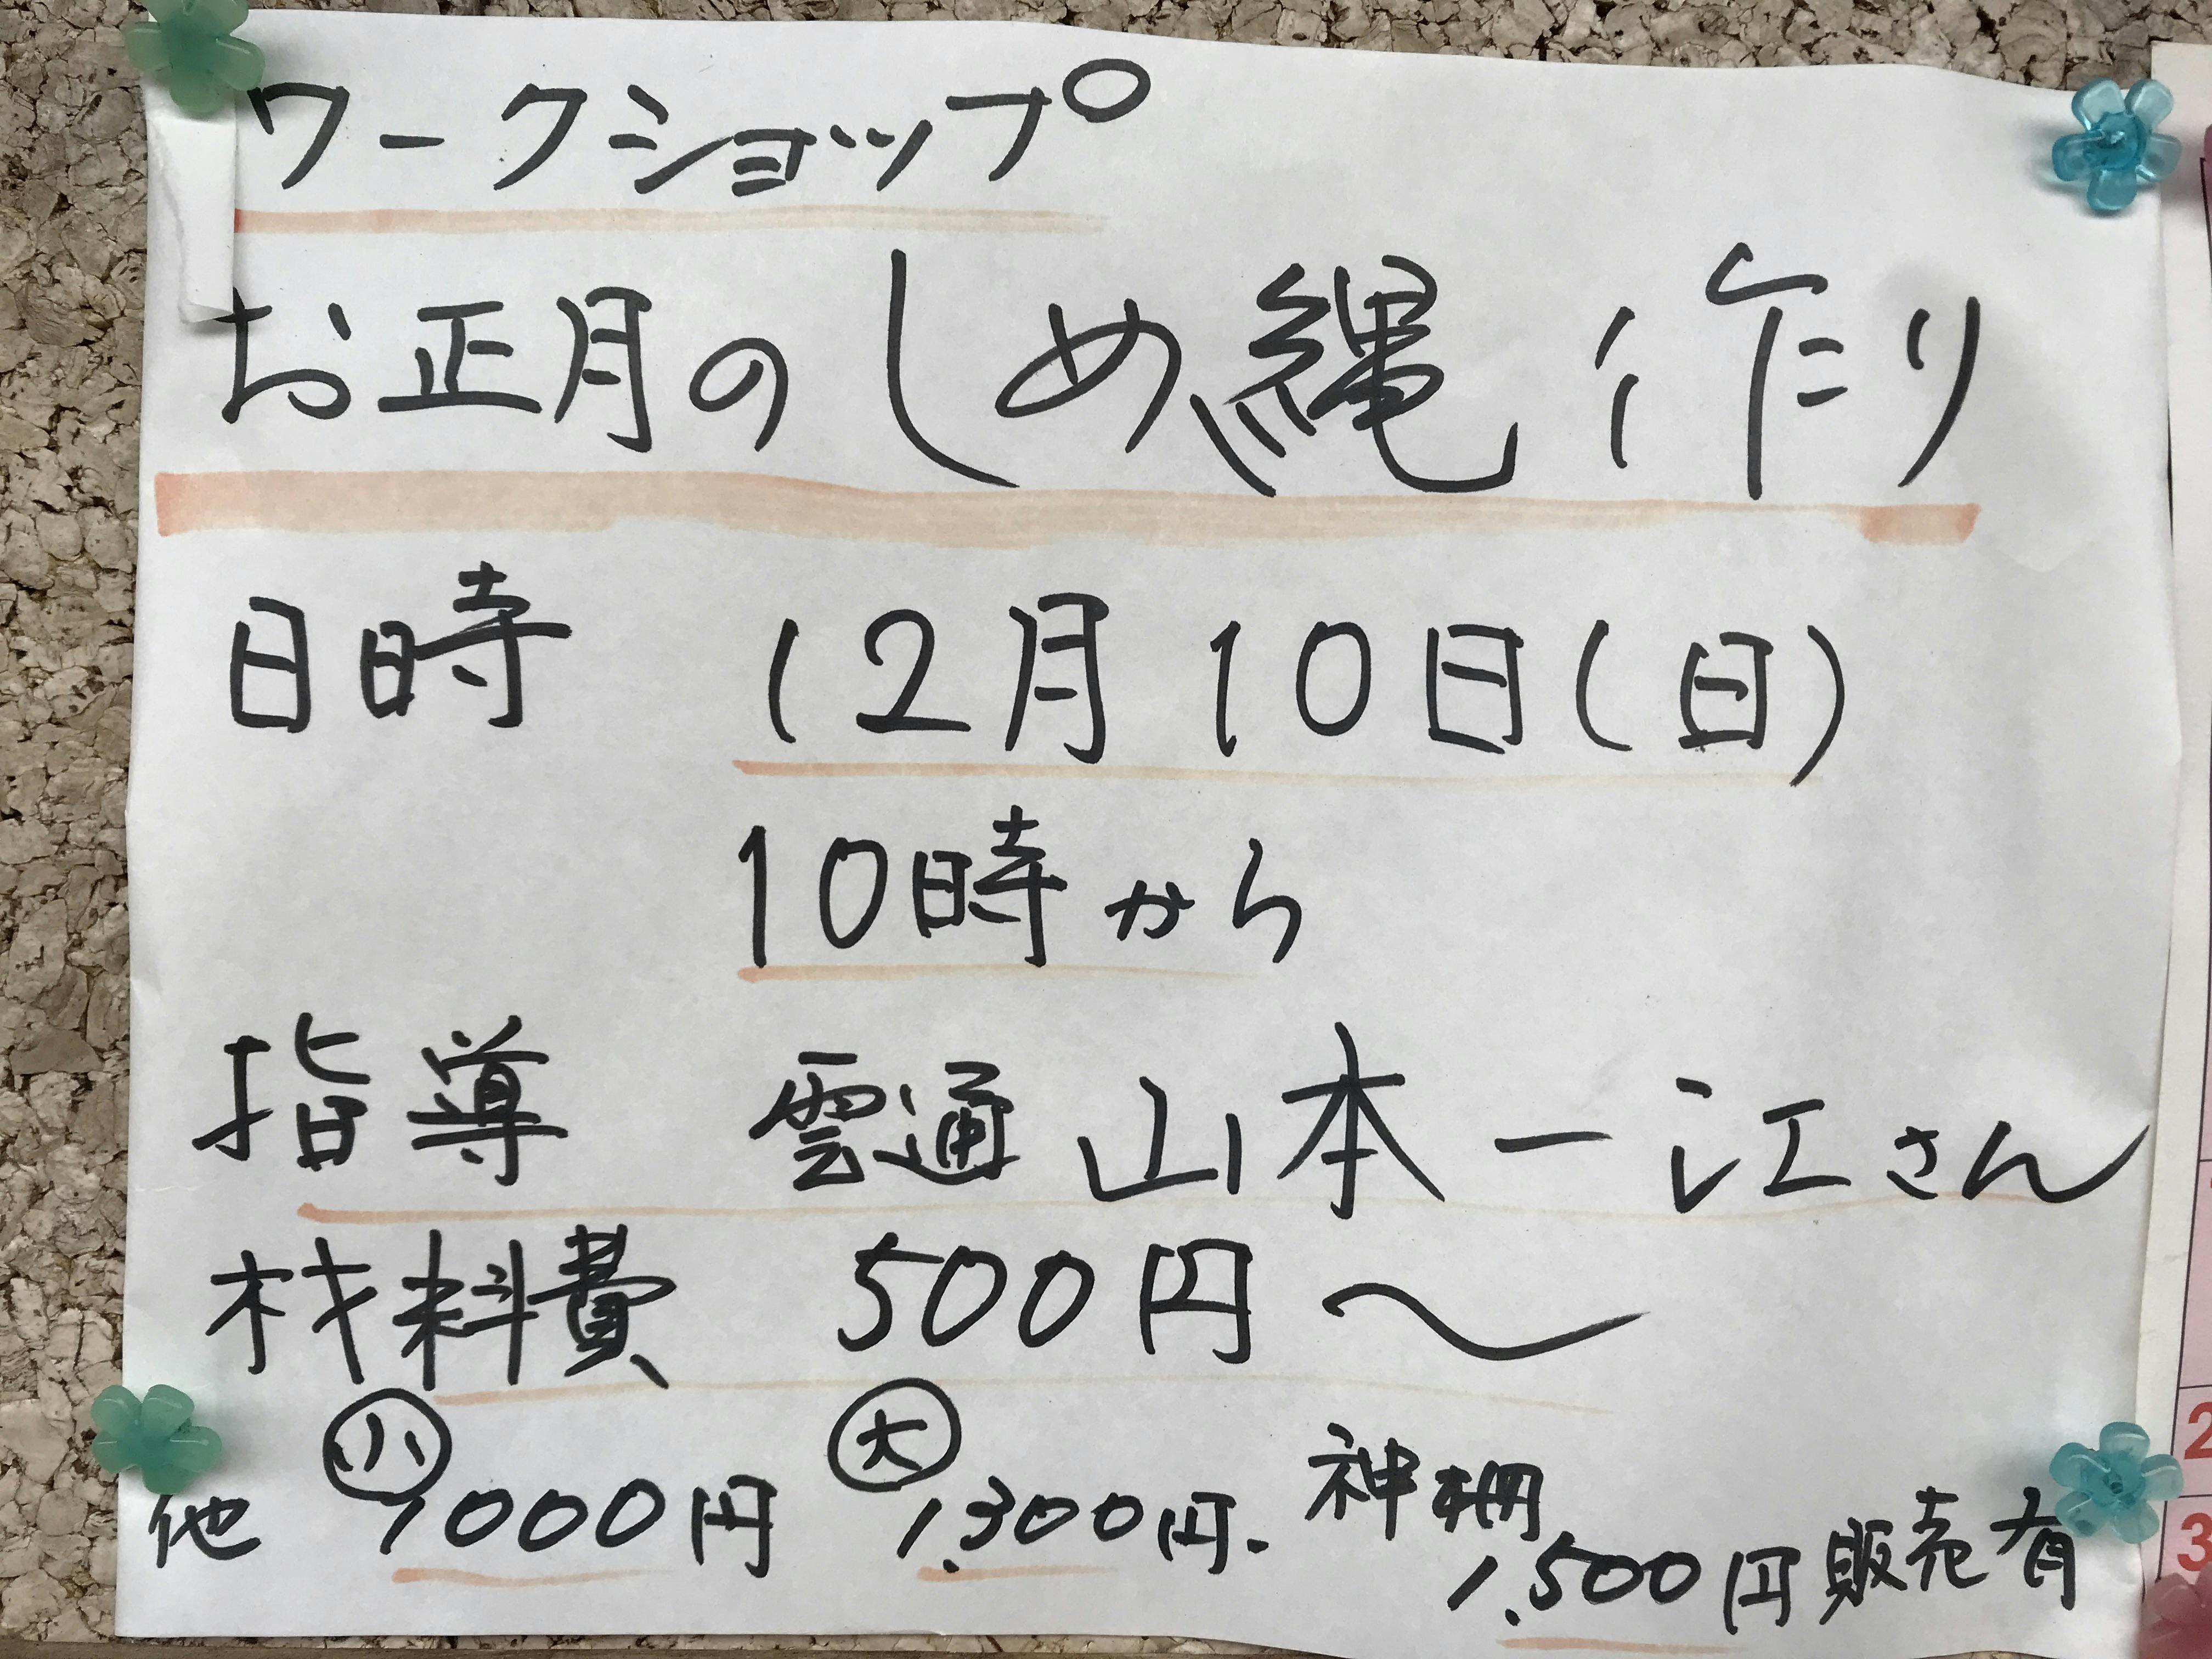 ワークショップ
お正月のしめ縄作り
日時 12月10日(日)
10時から
指導 雲通 山本一江さん
材料費 500円〜
他 小 1000円 大 1,300円. 神棚 1,500円販売有
2
3